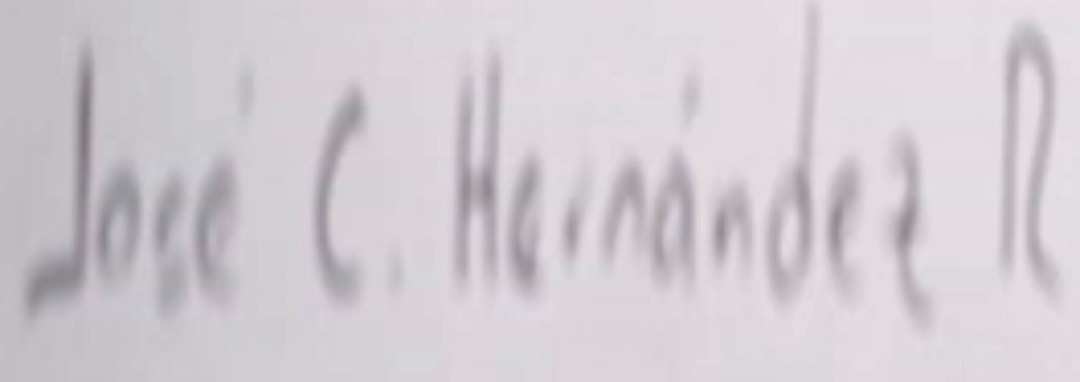 José C. Hernández R